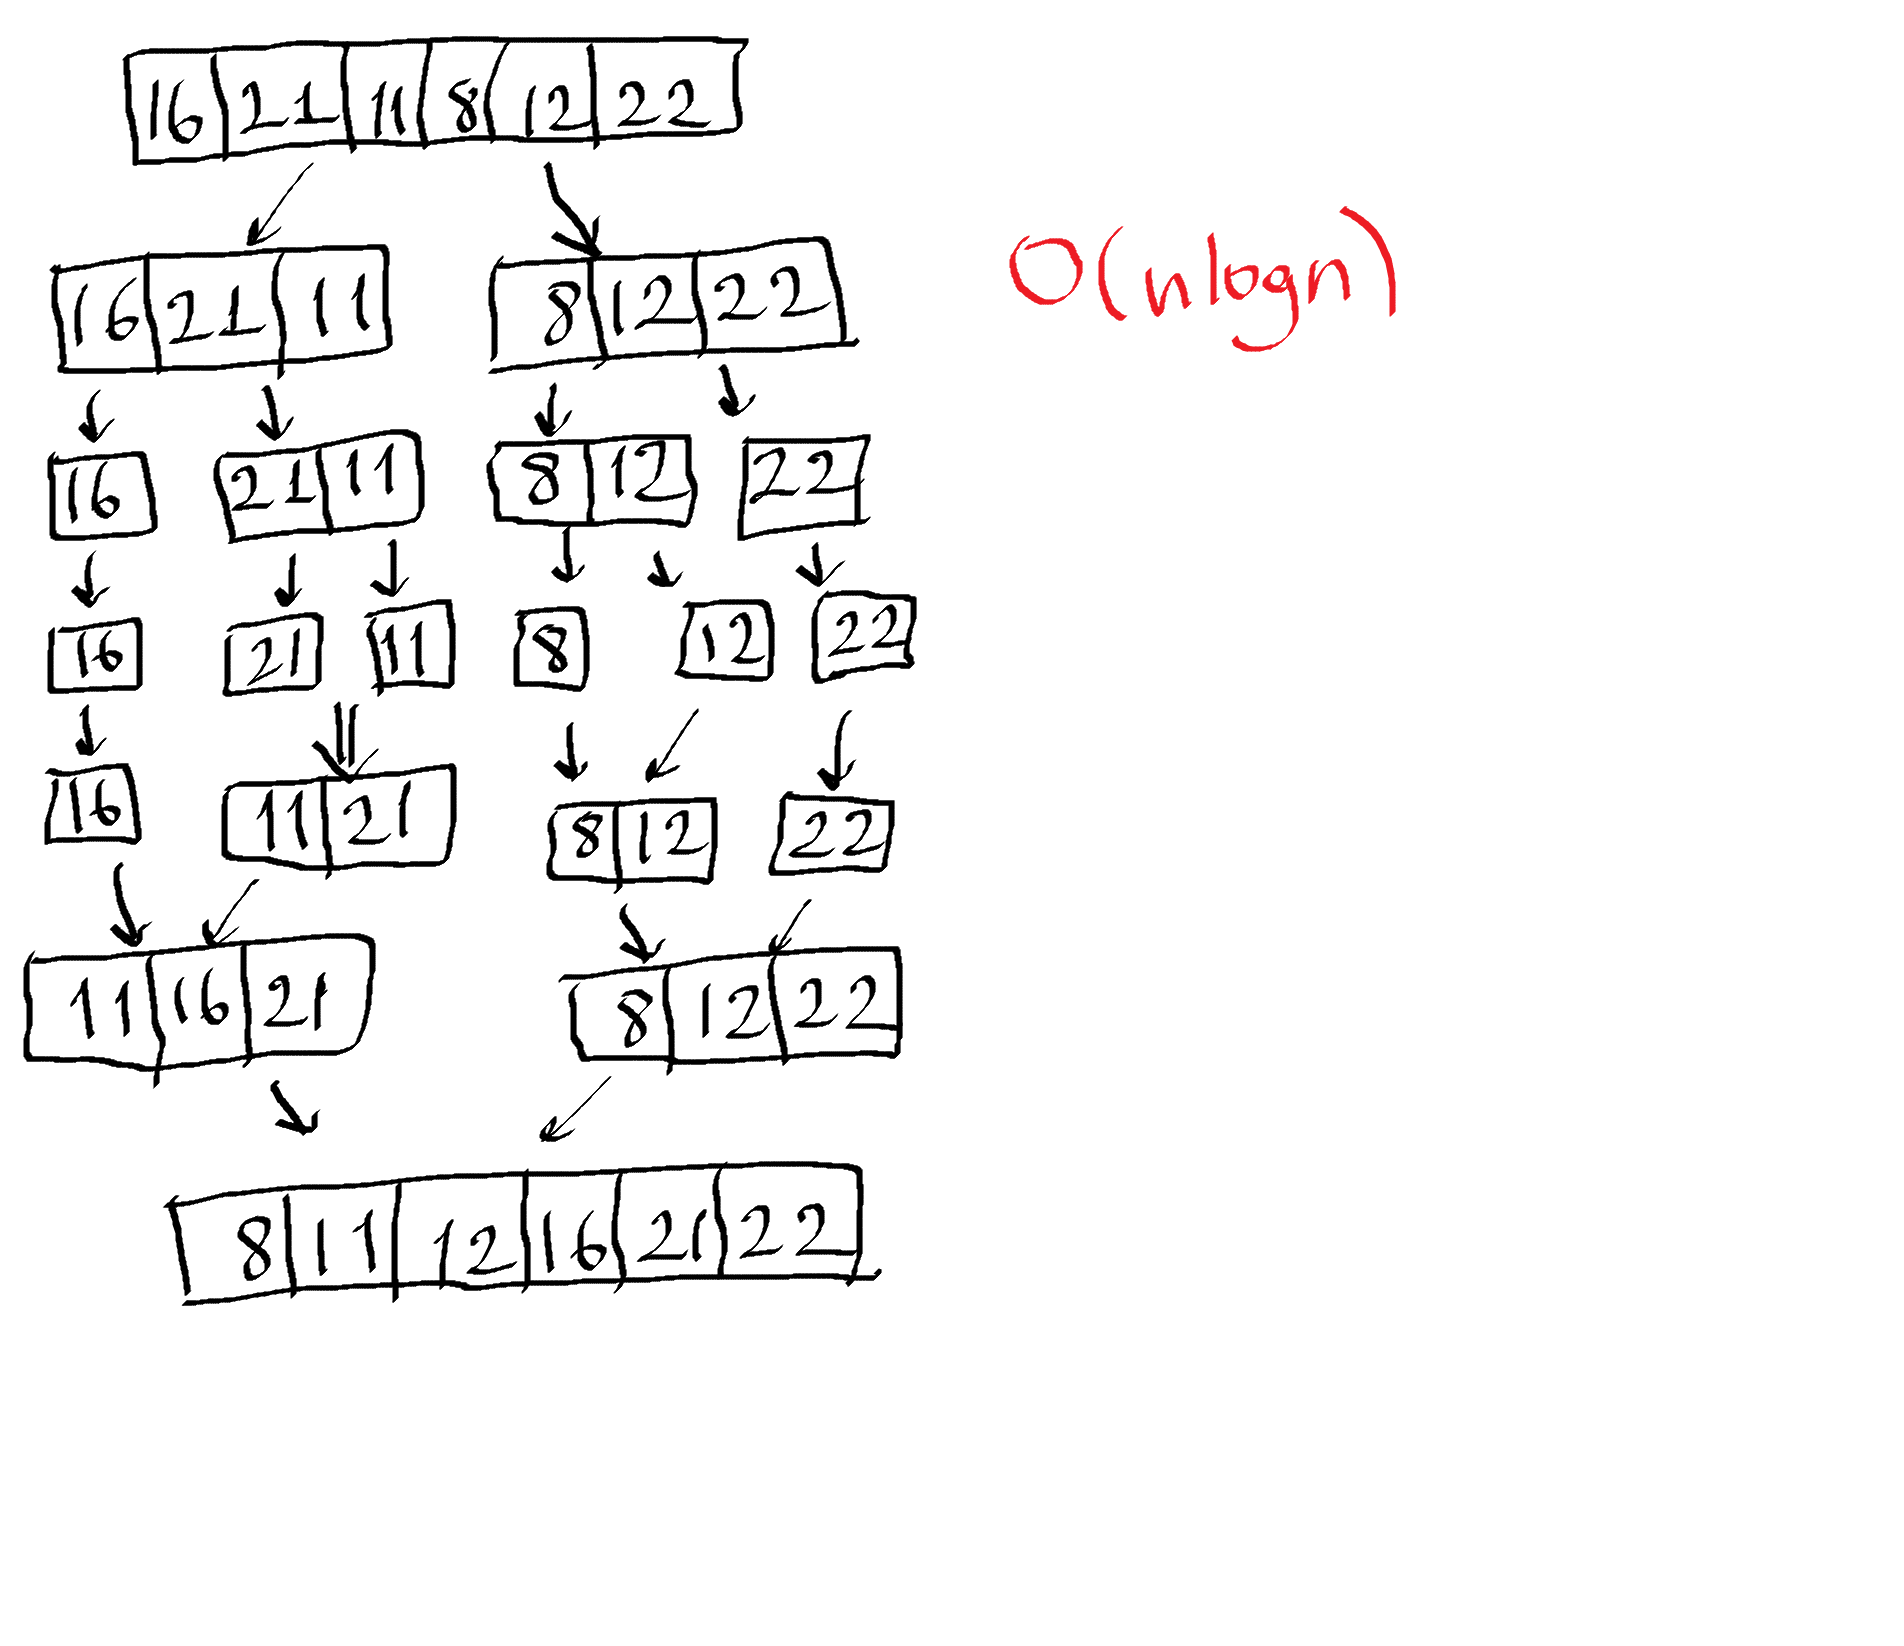 16 21 11 8 12 22
O(nlogn)
16 21 11 8 12 22
16 21 11 8 12 22
16 21 11 8 12 22
16 11 21 8 12 22
11 16 21 8 12 22
8 11 12 16 21 22